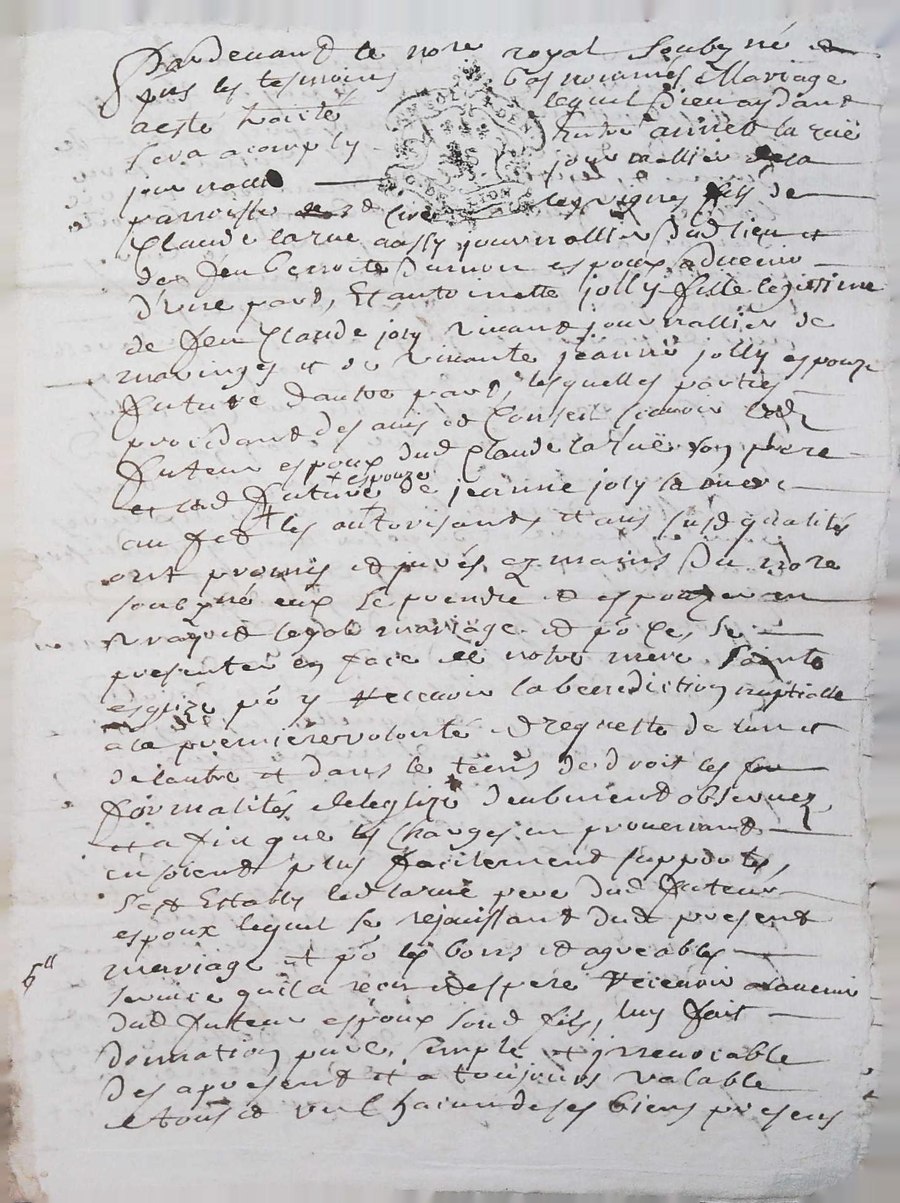 Pardevant le nore royal soubsné et
pnts les tesmoins bas nommés Mariage
a esté traité lequel Dieu aydant
sera acomply Entre annet larüe
journallier journallier de la
parroisse les vignes fils de
Claude larue aussy journallier dud lieu et
de feu benoite espoux aduenir
d'une part, Et antoinette jolly fille legitime
de feu Claude joly vivant journallier de
maringes et de vivante jeanne jolly espouze
future d'autre part, lesquelles parties
procedant des avis et Conseil scavoir led
futeur espoux dud Claude larüe son pere
et lad future espouze de jeanne joly sa mere
au fet les autorisant et aus susd qualités
ont promis et jurés es mains du nore
soubsné eux se prendre et espouzer en
vray et legal mariage et po ce, se
presenter en face de notre mere sainte
esglize po y recevoir la benediction nuptialle
a la premiere volonté et requette de lun et
de lautre et dans le tems de droit les
formalités de leglize deubment observez
et afin que les charges en provenant
en soient plus facilement supportés,
s'est Estably led larue pere dud futeur
espoux lequel se rejouissant dud present
mariage et po les bons et agreables
service quil a reçu et espere recevoir a lauenir
dud futeur espoux sond fils, luy fait
donnation pure, simple et irrevocable
des apresent et a toujours valable
de tous et un Chacun de ses biens presens